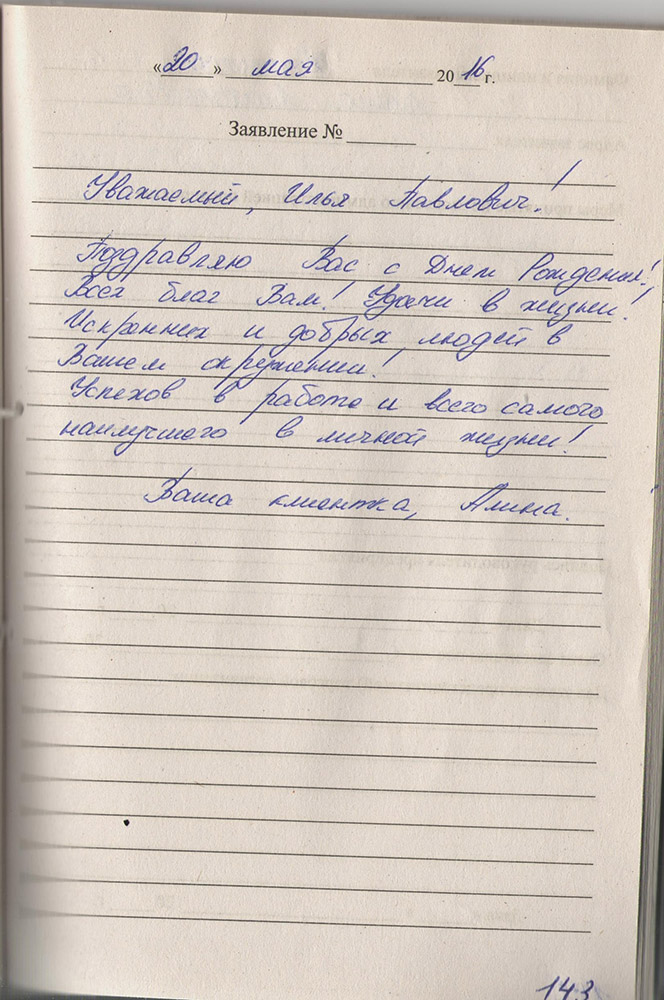 «20» мая 2016 г.
Заявление №
Уважаемый, Илья Павлович!
Поздравляю Вас с Днем Рождения!
Всех благ Вам! Удачи в жизни!
Искренних и добрых людей в
Вашем окружении!
Успехов в работе и всего самого
наилучшего в личной жизни!
Ваша клиентка, Алина.
143